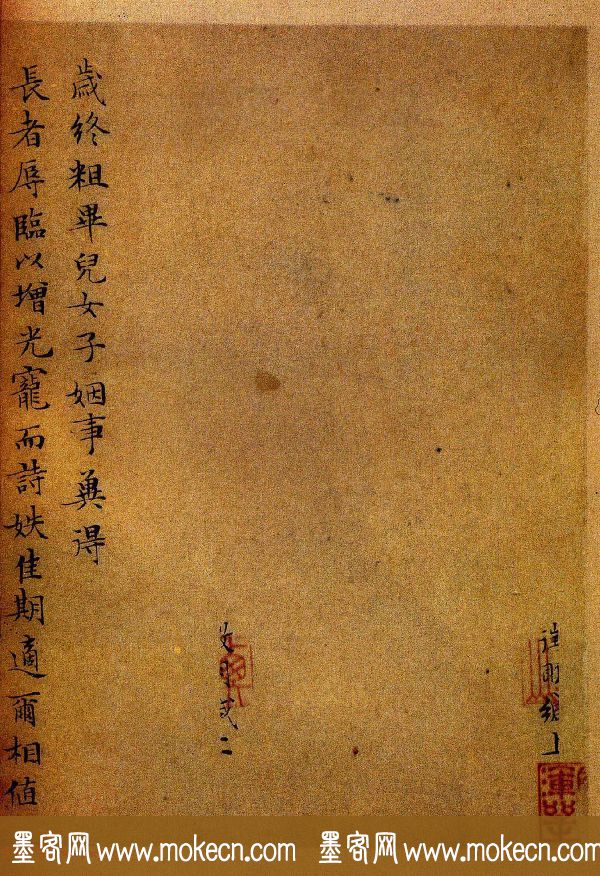 歲終粗畢兒女子姻事冀得
長者辱臨以增光寵而詩姝佳期適爾相值
墨客网 www.mokecn.com 墨客网 www.mokecn.com